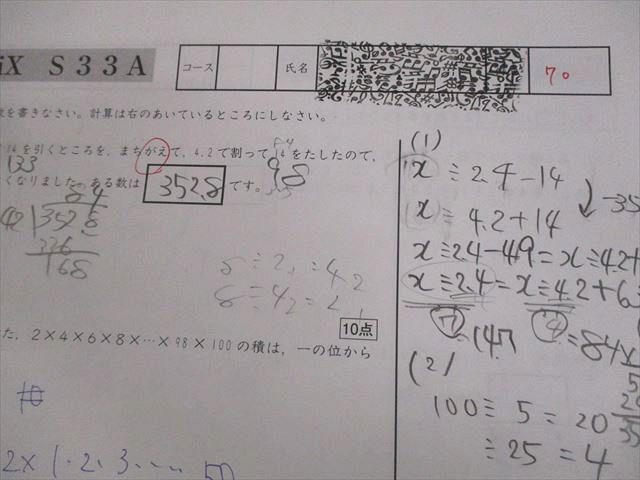 iX S33A
コース 氏名
70
数を書きなさい。計算は右のあいているところにしなさい。
14を引くところを、まちがえて、4.2で割って14をたしたので、
133
98
くなりました。ある数は 352.8 です。
84
42)3528
336
168
8÷2.=4.2
8÷4.2=2.
10点
た、2×4×6×8×…×98×100の積は、一の位から
10
2×1・2・3・… 50
(1)
x÷2.4-14
-35
x÷4.2+14
x÷2.4-49=x÷4.2+
x÷2.4=x÷4.2+6
⑦ ④
=147 =84
(2)
100÷5=20
÷25=4